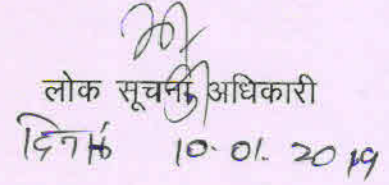 लोक सूचना अधिकारी
दिनांक 10.01.2019